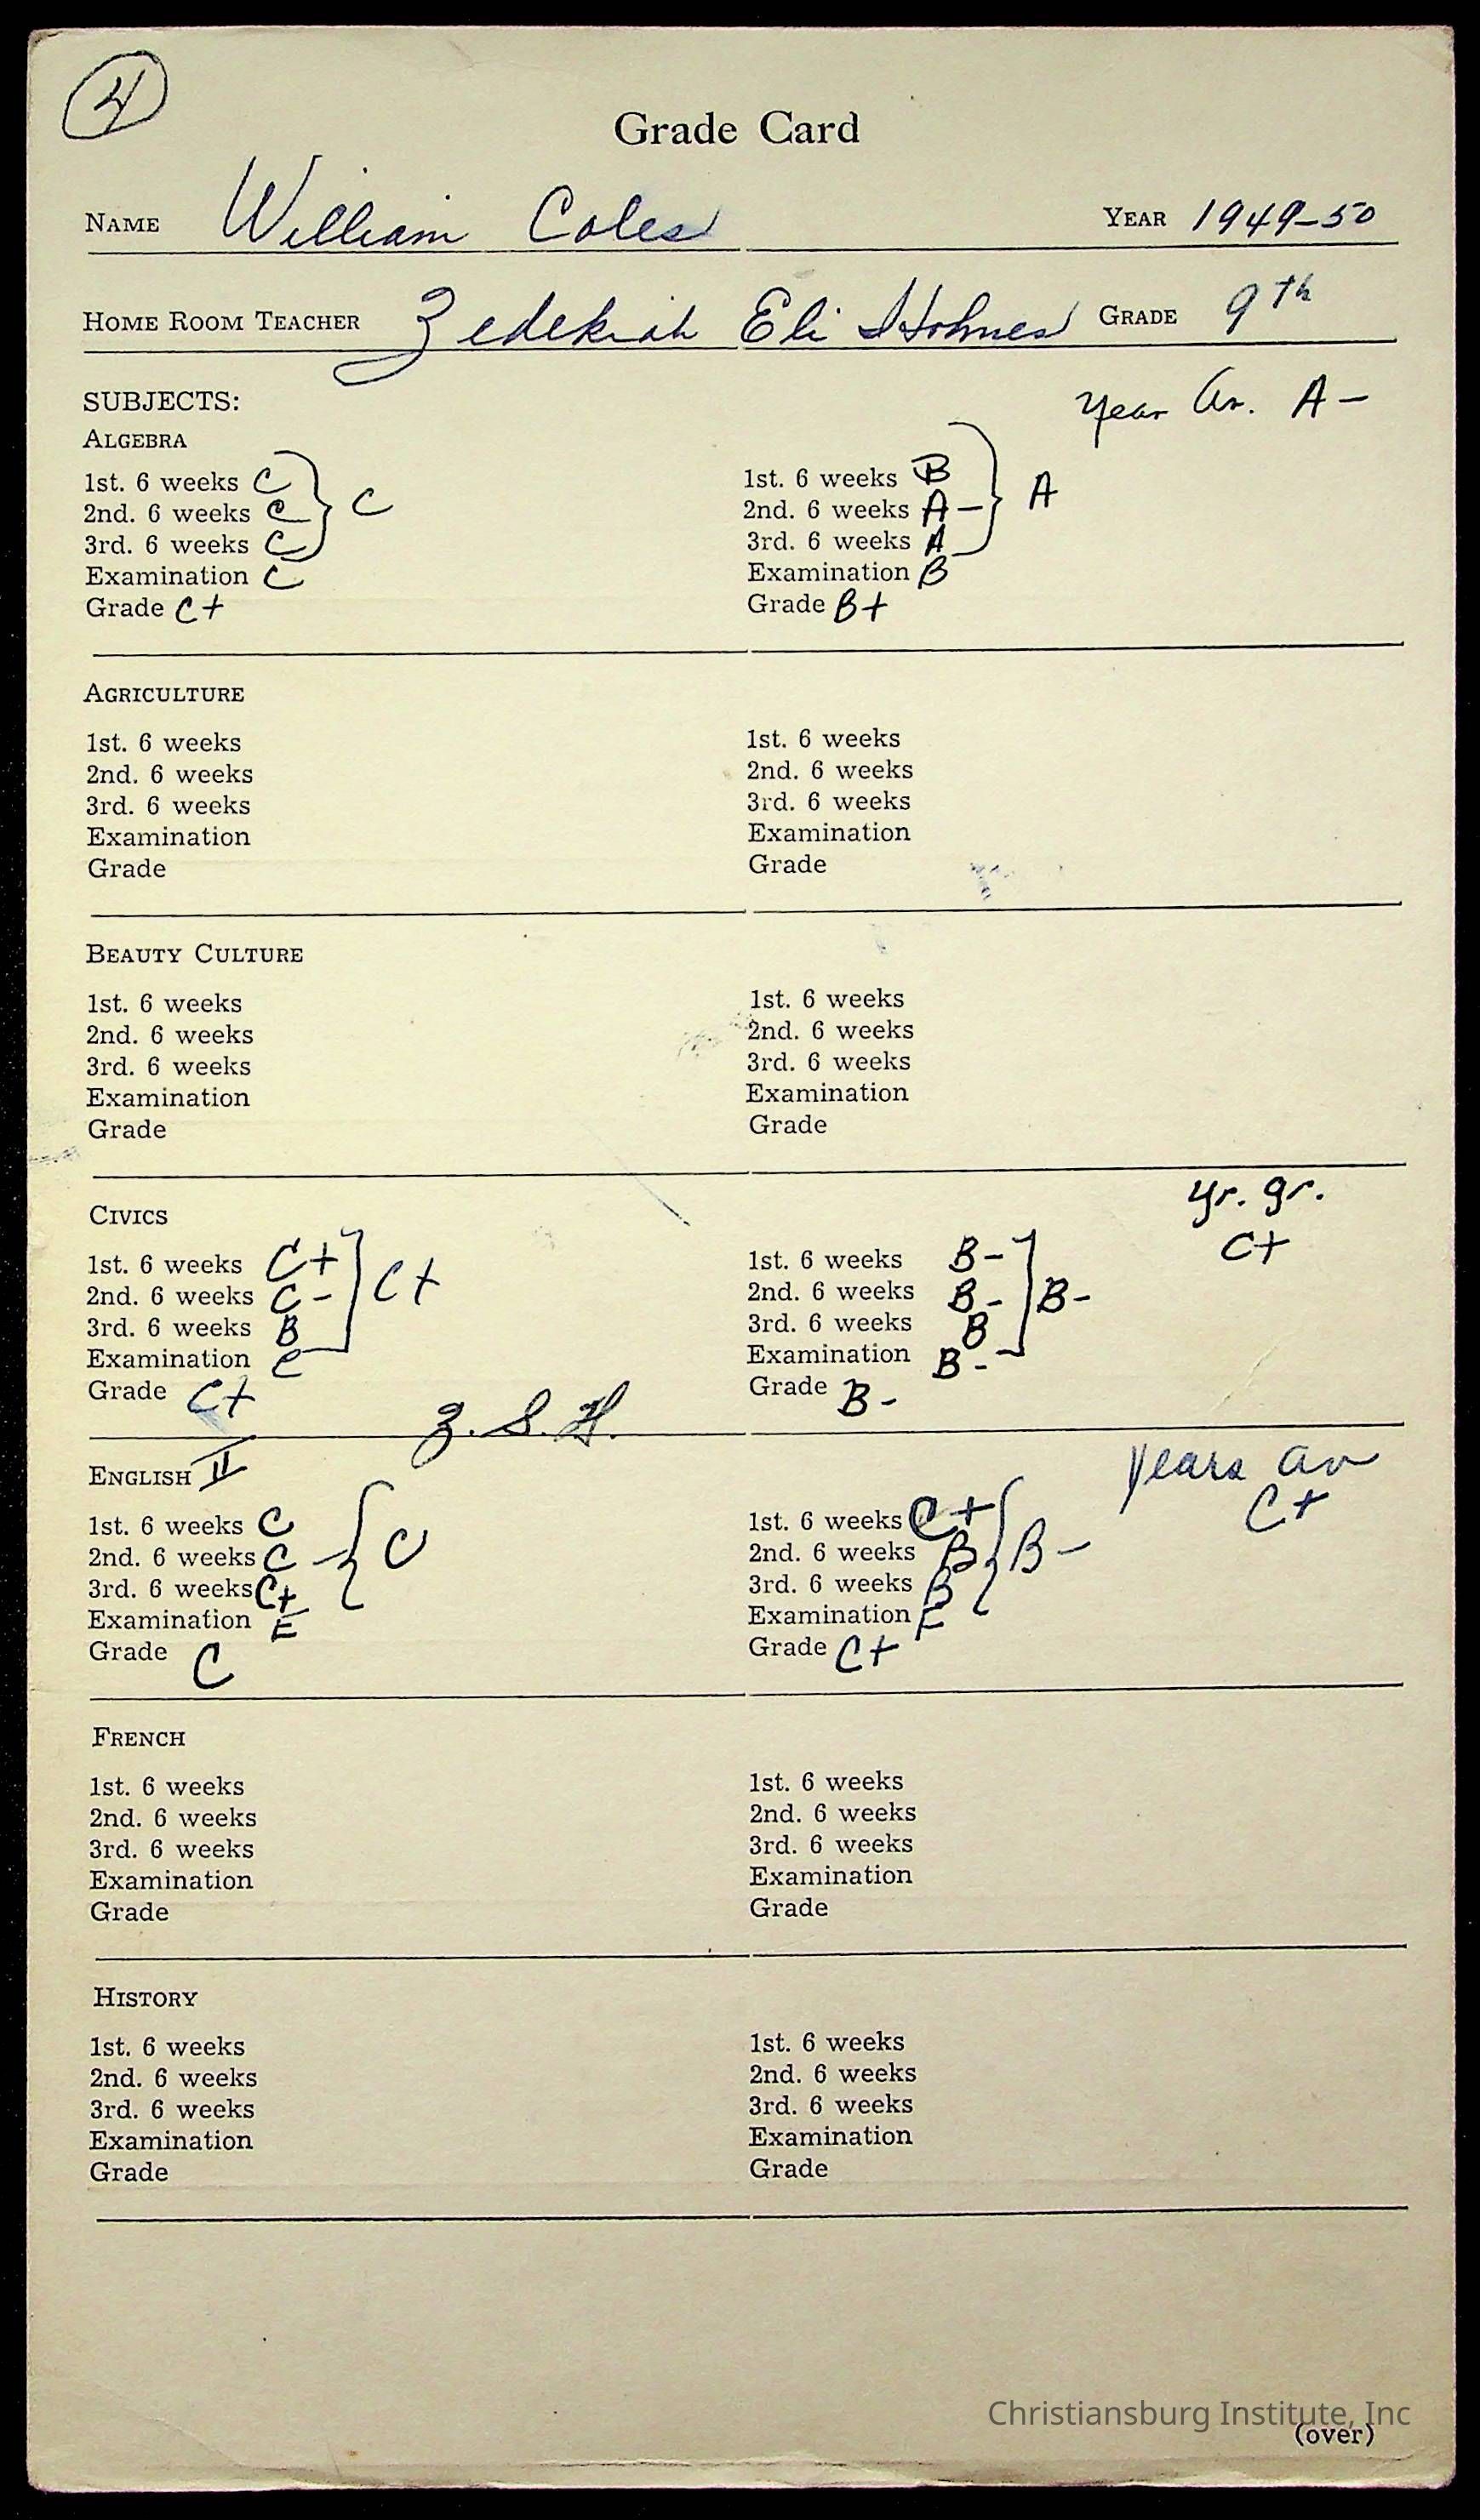 4
Grade Card
NAME William Coles YEAR 1949-50
HOME ROOM TEACHER Zedekiah Eli Holmes GRADE 9th
SUBJECTS: Year Av. A-
ALGEBRA
1st. 6 weeks C 1st. 6 weeks B
2nd. 6 weeks C C 2nd. 6 weeks A- A
3rd. 6 weeks C 3rd. 6 weeks A
Examination C Examination B
Grade C+ Grade B+
AGRICULTURE
1st. 6 weeks 1st. 6 weeks
2nd. 6 weeks 2nd. 6 weeks
3rd. 6 weeks 3rd. 6 weeks
Examination Examination
Grade Grade
BEAUTY CULTURE
1st. 6 weeks 1st. 6 weeks
2nd. 6 weeks 2nd. 6 weeks
3rd. 6 weeks 3rd. 6 weeks
Examination Examination
Grade Grade
CIVICS yr. gr.
1st. 6 weeks C+ 1st. 6 weeks B- C+
2nd. 6 weeks C- C+ 2nd. 6 weeks B- B-
3rd. 6 weeks B 3rd. 6 weeks B
Examination C Examination B-
Grade C+ Grade B-
Z. S. H.
ENGLISH II Years av
1st. 6 weeks C 1st. 6 weeks C+ C+
2nd. 6 weeks C C 2nd. 6 weeks B B-
3rd. 6 weeks C+ 3rd. 6 weeks B
Examination E Examination E
Grade C Grade C+
FRENCH
1st. 6 weeks 1st. 6 weeks
2nd. 6 weeks 2nd. 6 weeks
3rd. 6 weeks 3rd. 6 weeks
Examination Examination
Grade Grade
HISTORY
1st. 6 weeks 1st. 6 weeks
2nd. 6 weeks 2nd. 6 weeks
3rd. 6 weeks 3rd. 6 weeks
Examination Examination
Grade Grade
Christiansburg Institute, Inc
(over)